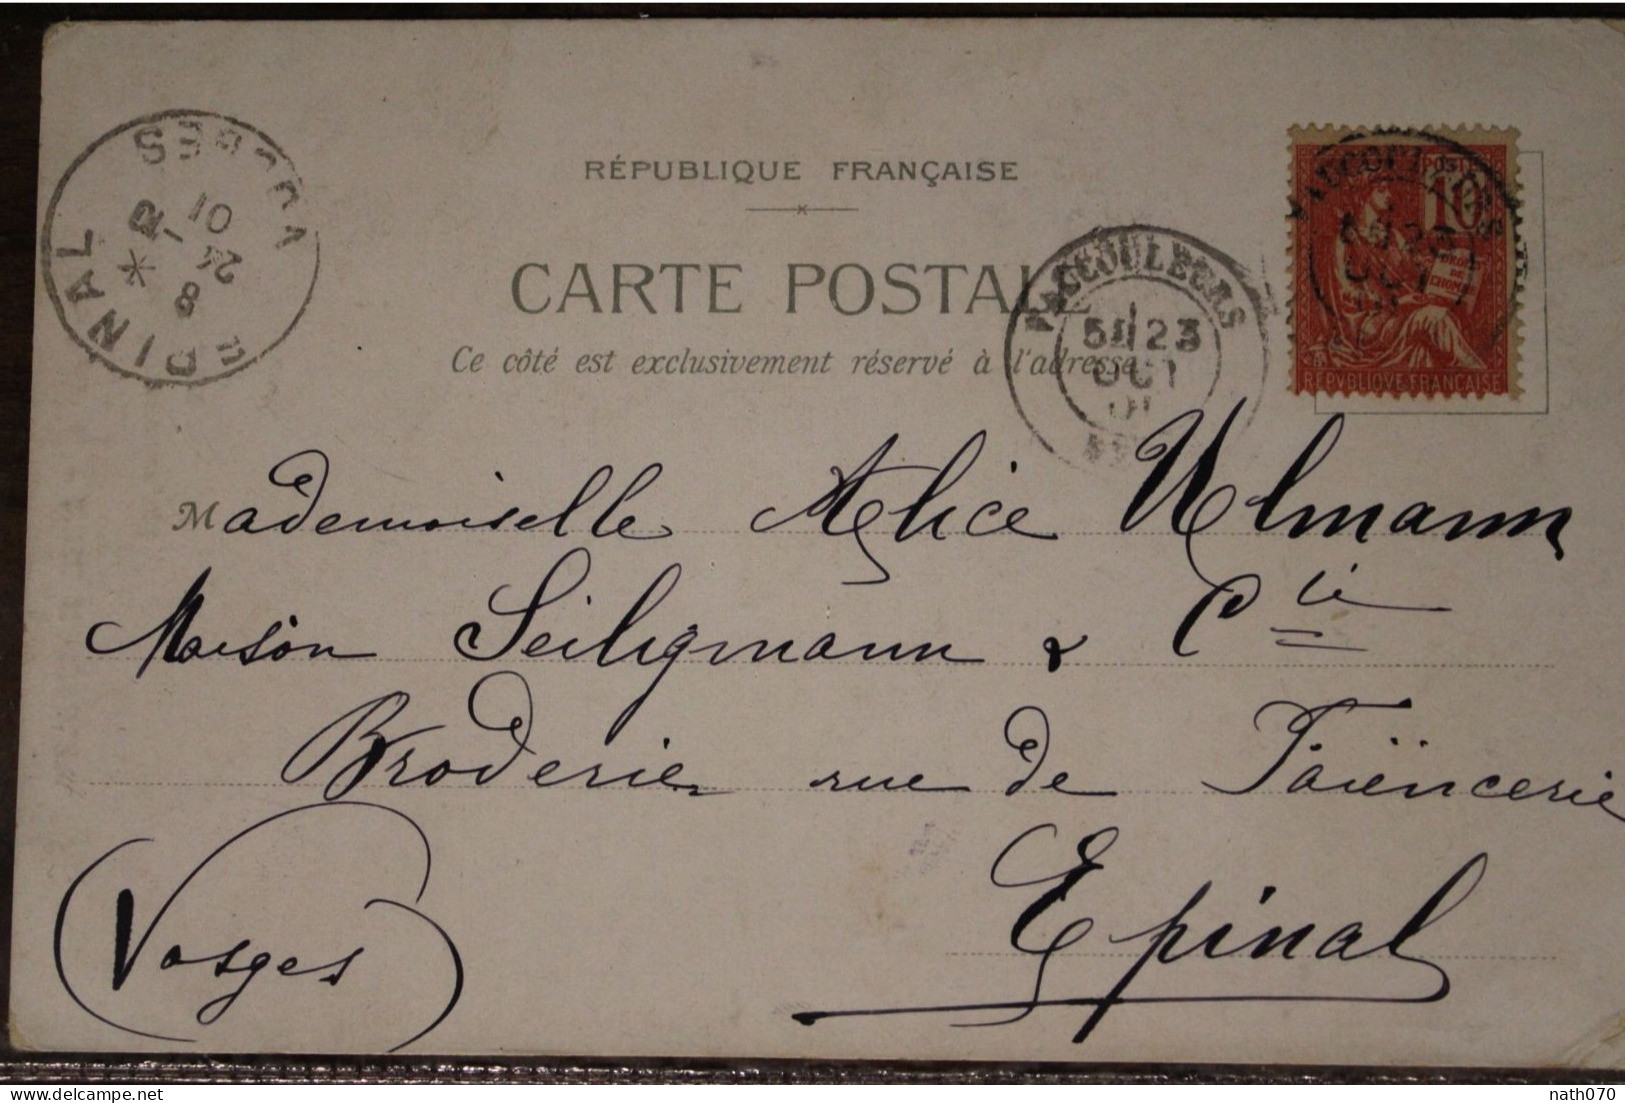 RÉPUBLIQUE FRANÇAISE
CARTE POSTALE
Ce côté est exclusivement réservé à l'adresse
EPINAL VOSGES
8 24 01
VAUCOULEURS
5E 23
OCT
01
POSTES
10
DROITS DE L'HOMME
REPVBLIQVE FRANÇAISE
VAUCOULEURS
23
OCT
Mademoiselle Alice Ulmann
Maison Seiligmann & Cie
Broderie rue de Faïencerie
Epinal
(Vosges)
nath070